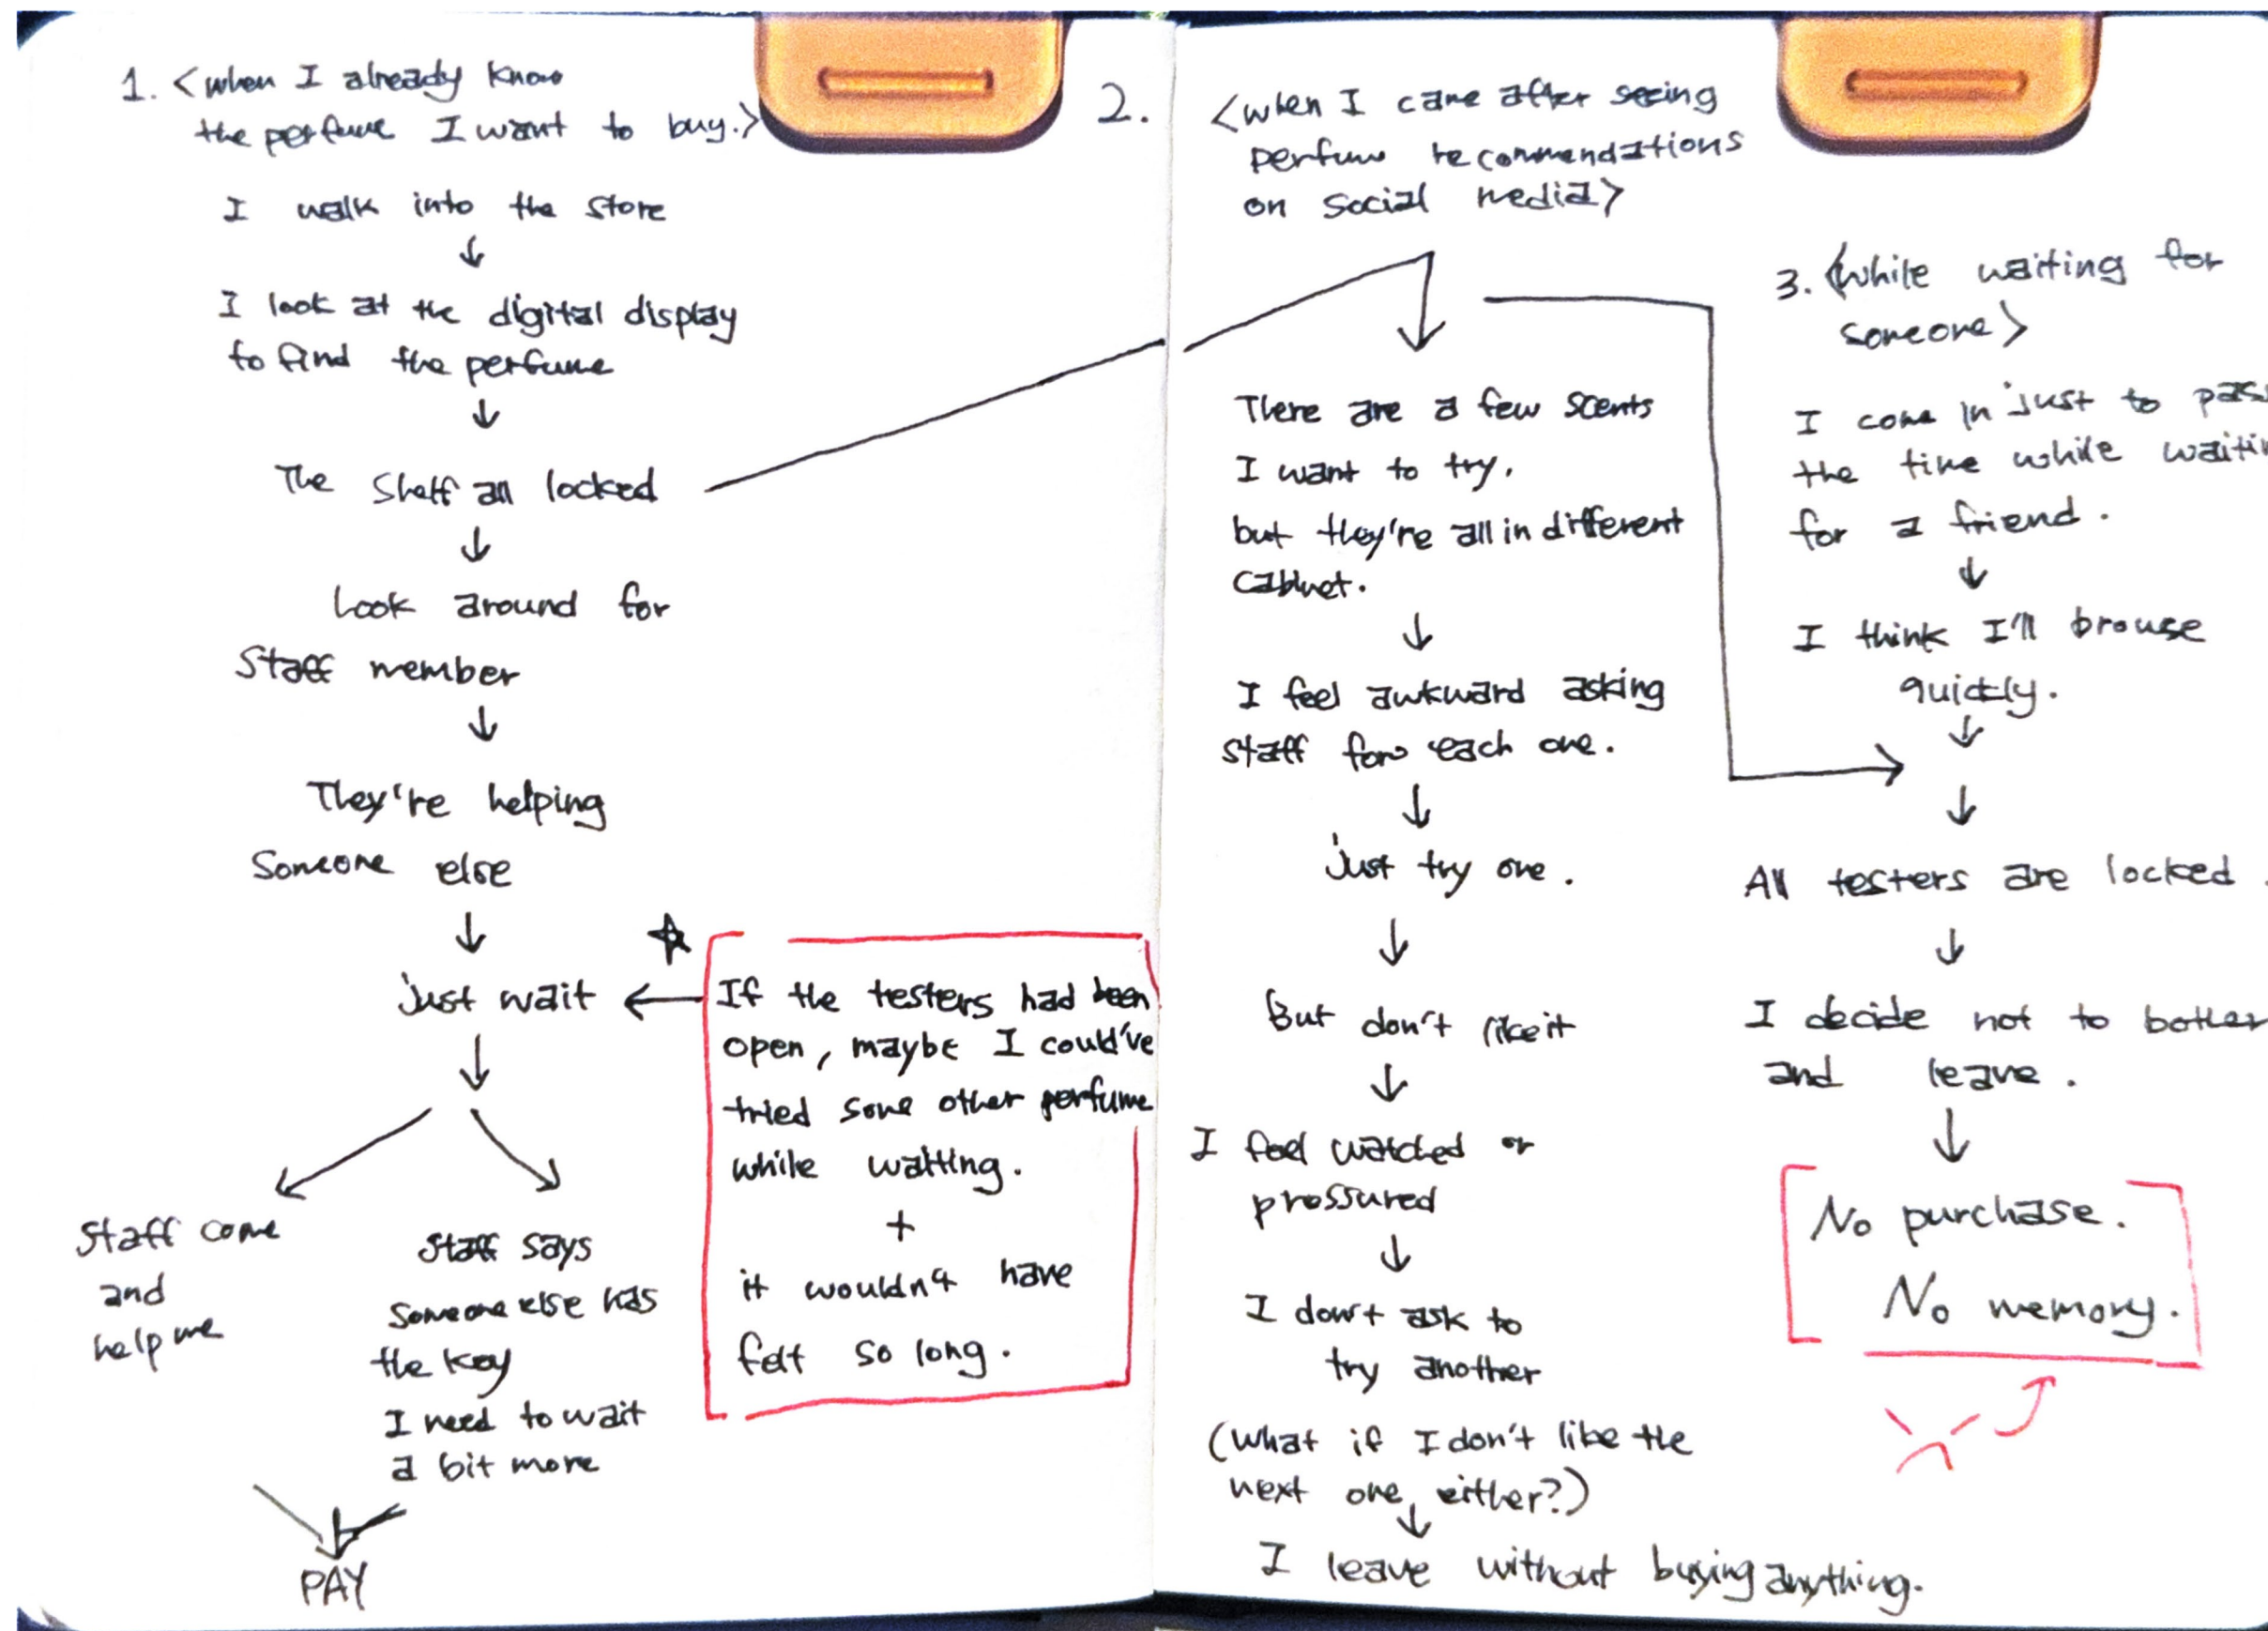 1. <when I already know
the perfume I want to buy.>
I walk into the store
↓
I look at the digital display
to find the perfume
↓
The Shelf all locked
↓
Look around for
Staff member
↓
They're helping
Someone else
↓
just wait
↓
Staff come
and
help me
Staff says
Someone else has
the key
I need to wait
a bit more
PAY
★
If the testers had been
open, maybe I could've
tried some other perfume
while waiting.
+
it wouldn't have
felt so long.
2. <when I came after seeing
perfume recommendations
on social media>
There are a few scents
I want to try.
but they're all in different
cabinet.
↓
I feel awkward asking
staff for each one.
↓
just try one.
↓
But don't like it
↓
I feel watched or
pressured
↓
I don't ask to
try another
(what if I don't like the
next one either?)
↓
I leave without buying anything.
3. <while waiting for
someone>
I come in just to pass
the time while
for a friend.
↓
I think I'll browse
quickly.
↓
↓
All testers are locked.
↓
I decide not to bother
and leave.
↓
No purchase.
No memory.